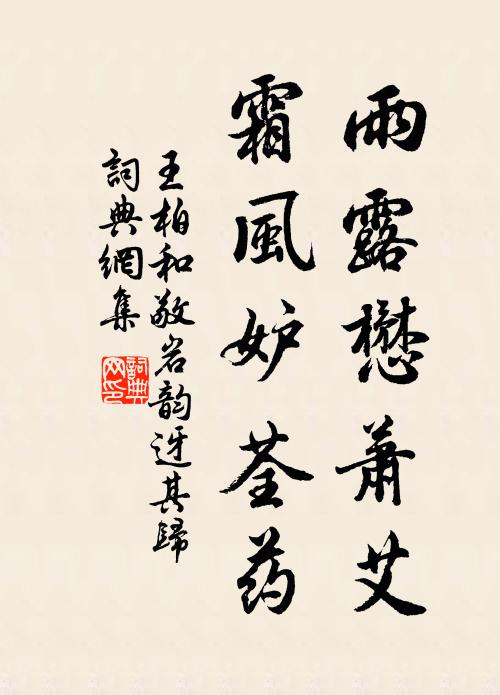 雨露懋蕭艾
霜風妒荃药
王柏和敬岩韵迓其歸
詞典網集
詞典網印